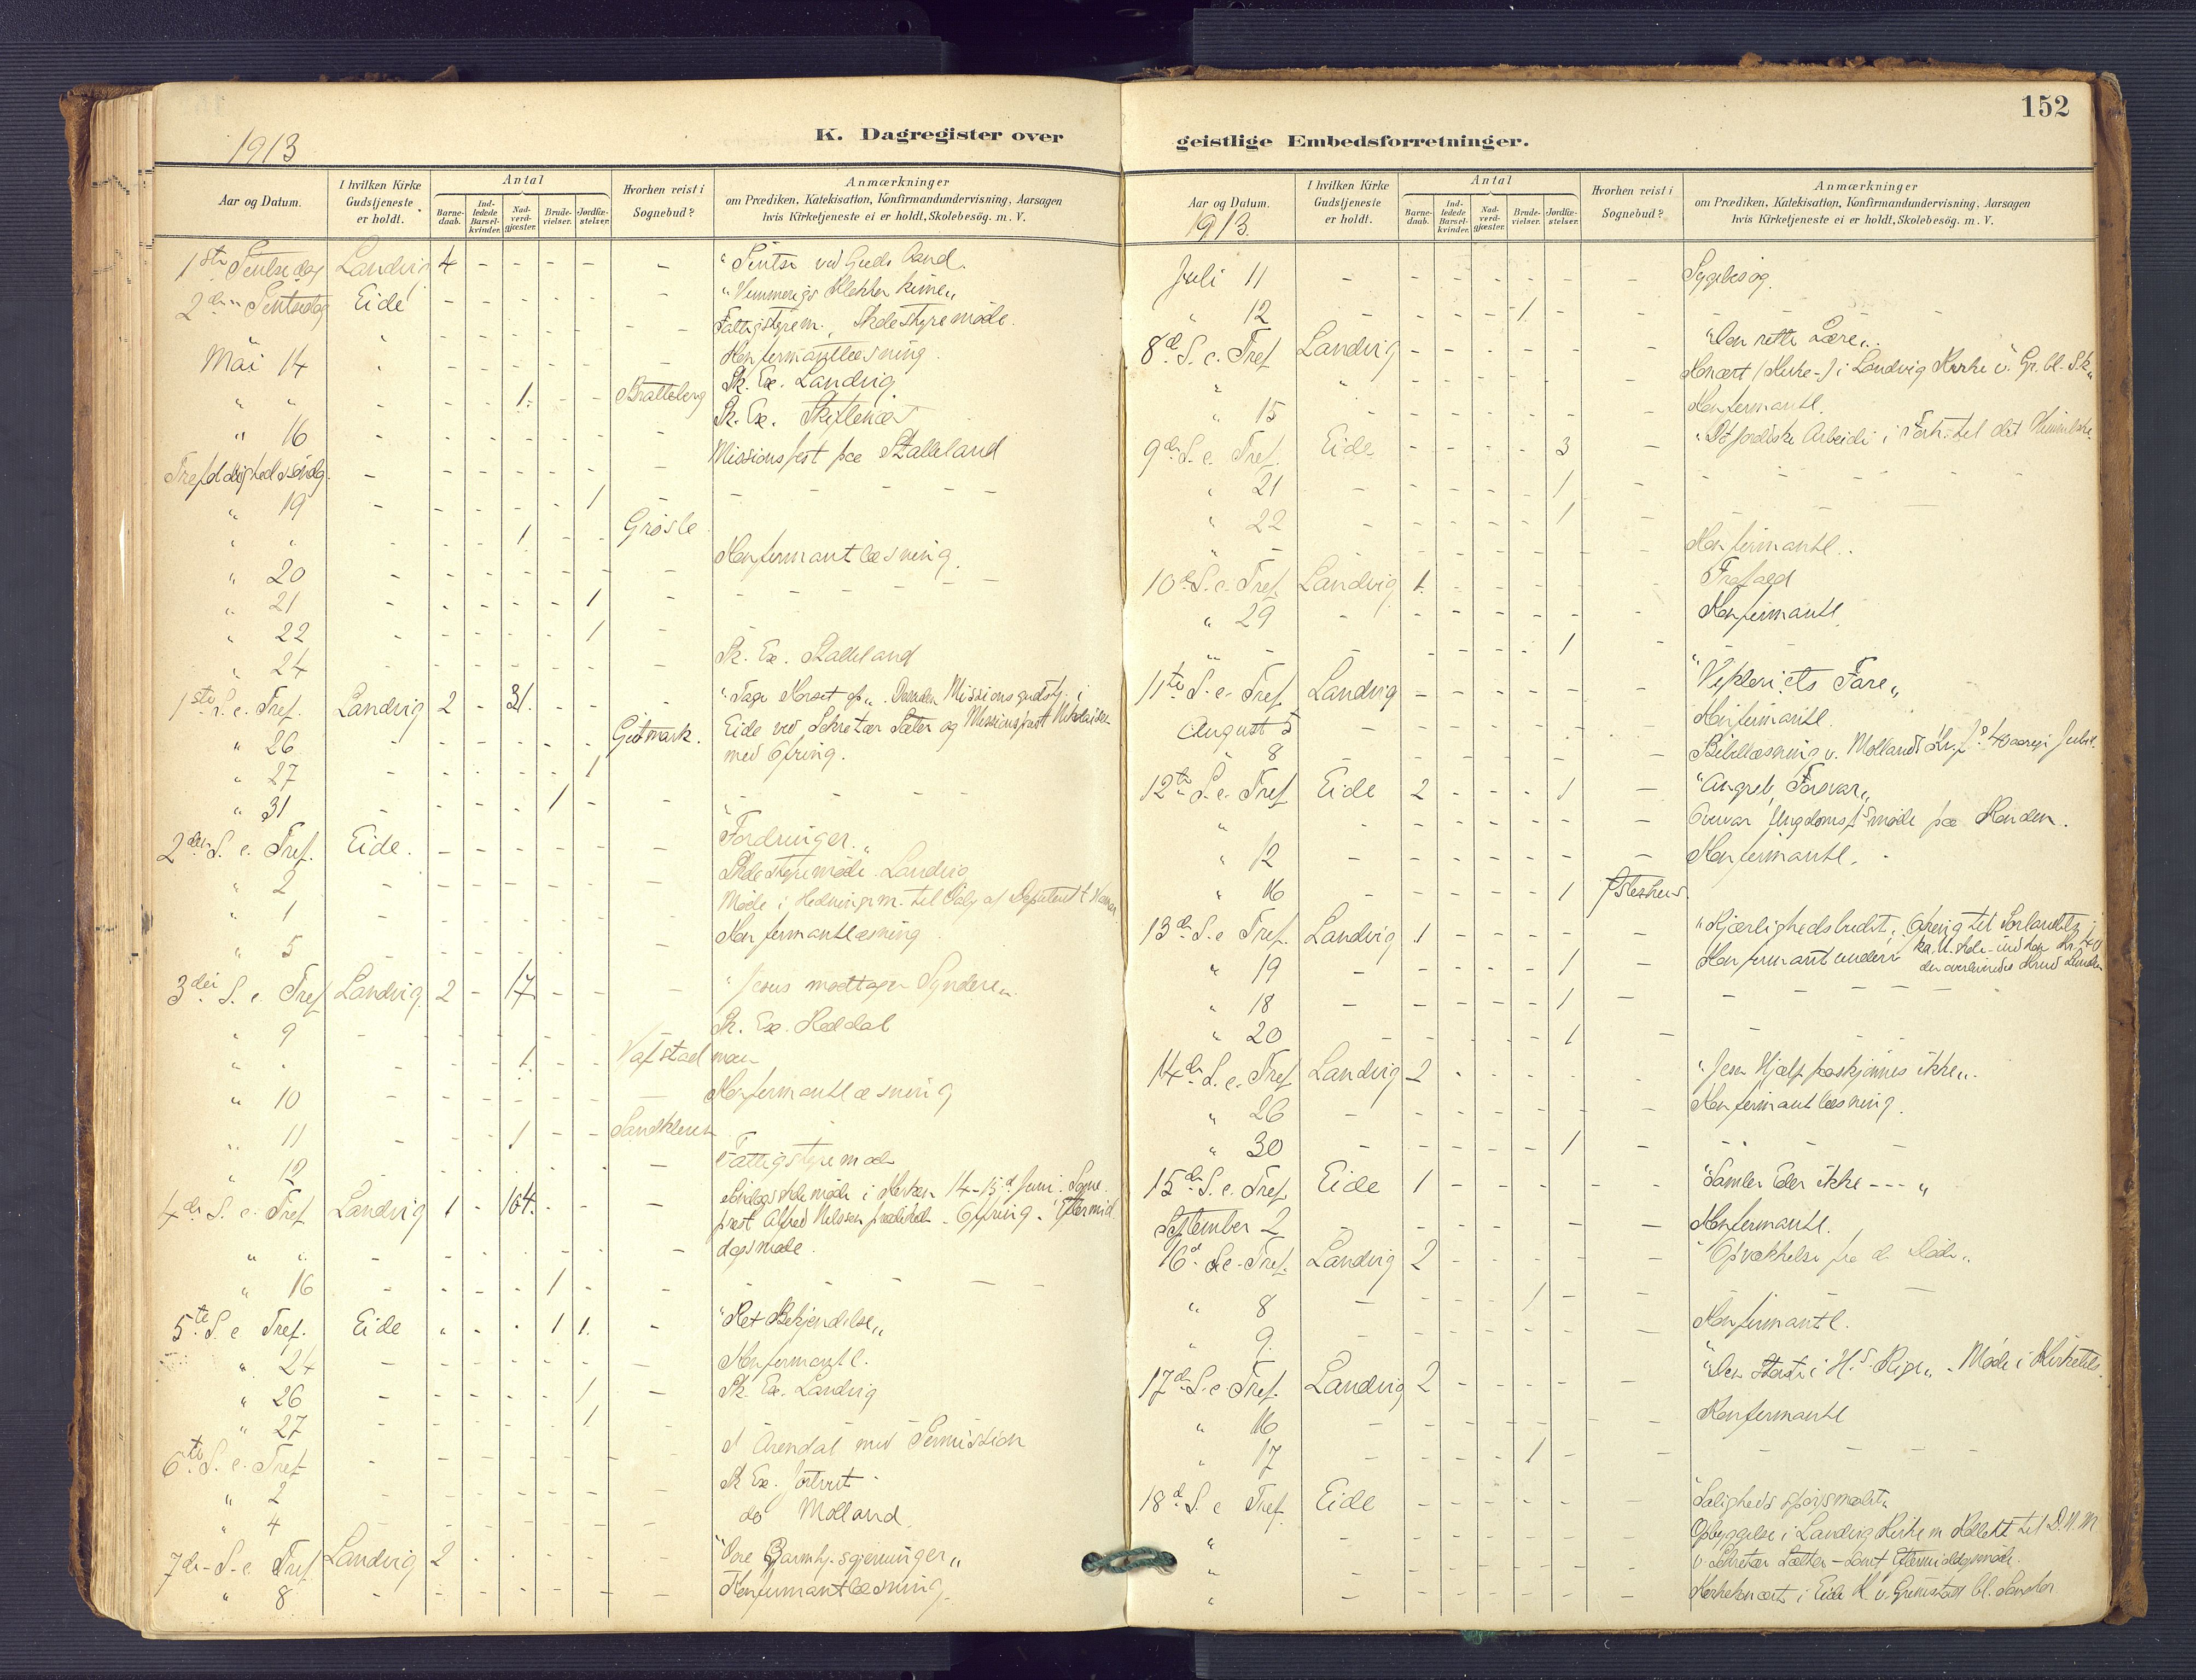 1913
K. Dagregister over
Aar og Datum.
I hvilken Kirke Gudstjeneste er holdt.
Antal
Barne-daab.
Ind-ledede Barsel-kvinder.
Nad-verd-gjæster.
Brude-vielser.
Jordfæ-stelser.
Hvorhen reist i Sognebud?
Anmærkninger
om Prædiken, Katekisation, Konfirmandundervisning, Aarsagen
hvis Kirketjeneste ei er holdt, Skolebesög. m. V.
1ste Pintsedag Landvig 4 - - - - - "Pintse ved Guds Aand.
2den Pintsedag Eide - - - - - -
Fattigstyrem., Skolestyremøde.
Mai 14 - - - - - Konfirmantlæsning.
" " - - 1. - - Bratteberg Sk. Ex. Landvig
" 16 - - - - - - Sk. Ex. Skiftenæs
Trefoldighedssøndg. - - - - - - Missionsfest paa Stalleland
" 19 - - - - - 1 -
" " - - - 1 - - Grøsle
" 20 - - - - - - Konfirmantlæsning.
" 21 - - - - - 1 -
" 22 - - - - - 1 -
" 24 - - - - - - Sk. Ex. Stalleland
1ste S. e. Tref. Landvig 2 - 31. - - - "Tage Korset op" Missionsgudstj. i
" 26 - - - - - Gutmark. Eide ved Sekretær Sæter og Missionsprest
" 27 - - - - - 1 med Ofring.
" 31 - - - - 1 -
2den S. e. Tref. Eide. - - - - - - "Fordringer."
" 2 - - - - - - Skolestyremøde. Landvig
" 1 - - - - - Møde i Hedningem. til Valg af
" 5 - - - - - - Konfirmantlæsning
3die S. e. Tref Landvig 2 - 17 - - - "Jesus modtager Syndere".
" 9 - - - - - - Sk. Ex. Reddal
" " - - - 1 - - Vafstad
" 10 - - - - - - Konfirmantlæsning
" 11 - - - 1 - - Sandkleven
" 12 - - - - - - Fattigstyremøde
4de S. e. Tref Landvig 1 - 164. - - - Søndagsskolemøde i Kirken 14-15d Juni. Sogne-
" " - - - - - - prest Alfred Nilssen prædikede - Ofring. Eftermid-
dagsmøde.
" 16 - - - - 1 -
5te S. e Tref. Eide " - - 1 1. - "Ret Bekjendelse"
" 24 - - - - - - Konfirmantl.
" 26 - - - - - 1 - Sk. Ex. Landvig
" 27 - - - - - 1
6te S. e. Tref - - - - - - I Arendal med Permission
" 2 - - - - - - Sk Ex.
" 4 - - - - - - do Molland
7de S. e Tref Landvig 2 - - - - - "Vore Barmhj.sgjerninger"
" 8 - - - - - - Konfirmantlæsning
152
geistlige Embedsforretninger.
Aar og Datum.
1913.
I hvilken Kirke Gudstjeneste er holdt.
Antal
Barne-daab.
Ind-ledede Barsel-kvinder.
Nad-verd-gjæster.
Brude-vielser.
Jordfæ-stelser.
Hvorhen reist i Sognebud?
Anmærkninger
om Prædiken, Katekisation, Konfirmandundervisning, Aarsagen
hvis Kirketjeneste ei er holdt, Skolebesög. m. V.
Juli 11 - - - - - - - Sygebesøg.
" 12 - - - - 1 - -
8de S. e. Tref Landvig - - - - - - "Den rette Lære".
" " - - - - - - Konsert (Kirke-) i Landvig Kirke v. Gr. bl. S.k.
" 15 - - - - - - Konfirmantl.
9de S. e. Tref Eide - - - - 3 - "Det jordiske Arbeide i Forh. til det Himmelske"
" 21 - - - - - 1 -
" 22 - - - - - 1 -
" - - - - - - Konfirmantl.
10de S. e. Tref. Landvig 1. - - - - - Frafald
" 29 - - - - - - Konfirmantl.
" - - - - - - 1 -
11te S. e. Tref Landvig - - - - - - "Fare"
August 5 - - - - - - Konfirmantl.
" 8 - - - - - - Bibellæsning v. Mollands
12te S. e. Tref Eide 2 - - - 1 - "Angreb, Forsvar"
" - - - - - - Overvar Ungdomsf.smøde paa Randen.
" 12 - - - - - - Konfirmantl.
" 16 - - - - - 1 Østerhus.
13de S. e Tref. Landvig 1 - - - - - "Kjærlighedsbudet". Ofring til
" 19 - - - - - 1 - Konfirmantunderv.
" 18 - - - - - 1 -
" 20 - - - - - 1 -
14de S. e. Tref Landvig 2 - - - - - "Jesu Hjælp paaskjønnes ikke".
" 26 - - - - - - Konfirmantlæsning.
" 30 - - - - - 1 -
15de S. e. Tref. Eide 1 - - - - - "Samler Eder ikke - - - "
September 2 - - - - - - Konfirmantl.
16d S. e. Tref. Landvig 2 - - - - - "Opvækkelse fra d. Døde".
" 8 - - - - 1 -
" 9. - - - - - - Konfirmantl.
17de S. e Tref. Landvig 2 - - - - - "Den største i H.s Rige" - Møde i Kirketils.
" 16 - - - - - - Konfirmantl
" 17 - - - - 1 - -
18d S. e Tref. Eide - - - - - - "Saligheds spørsmaalet"
" - - - - - - Opbyggelse i Landvig Kirke m Kollekt til D.N.M
" - - - - - - v. Sekretær Sætter - samt Eftermiddagsmøde.
" - - - - - - Kirkekonsert i Eide K. v. Grimstad bl. Sangkor